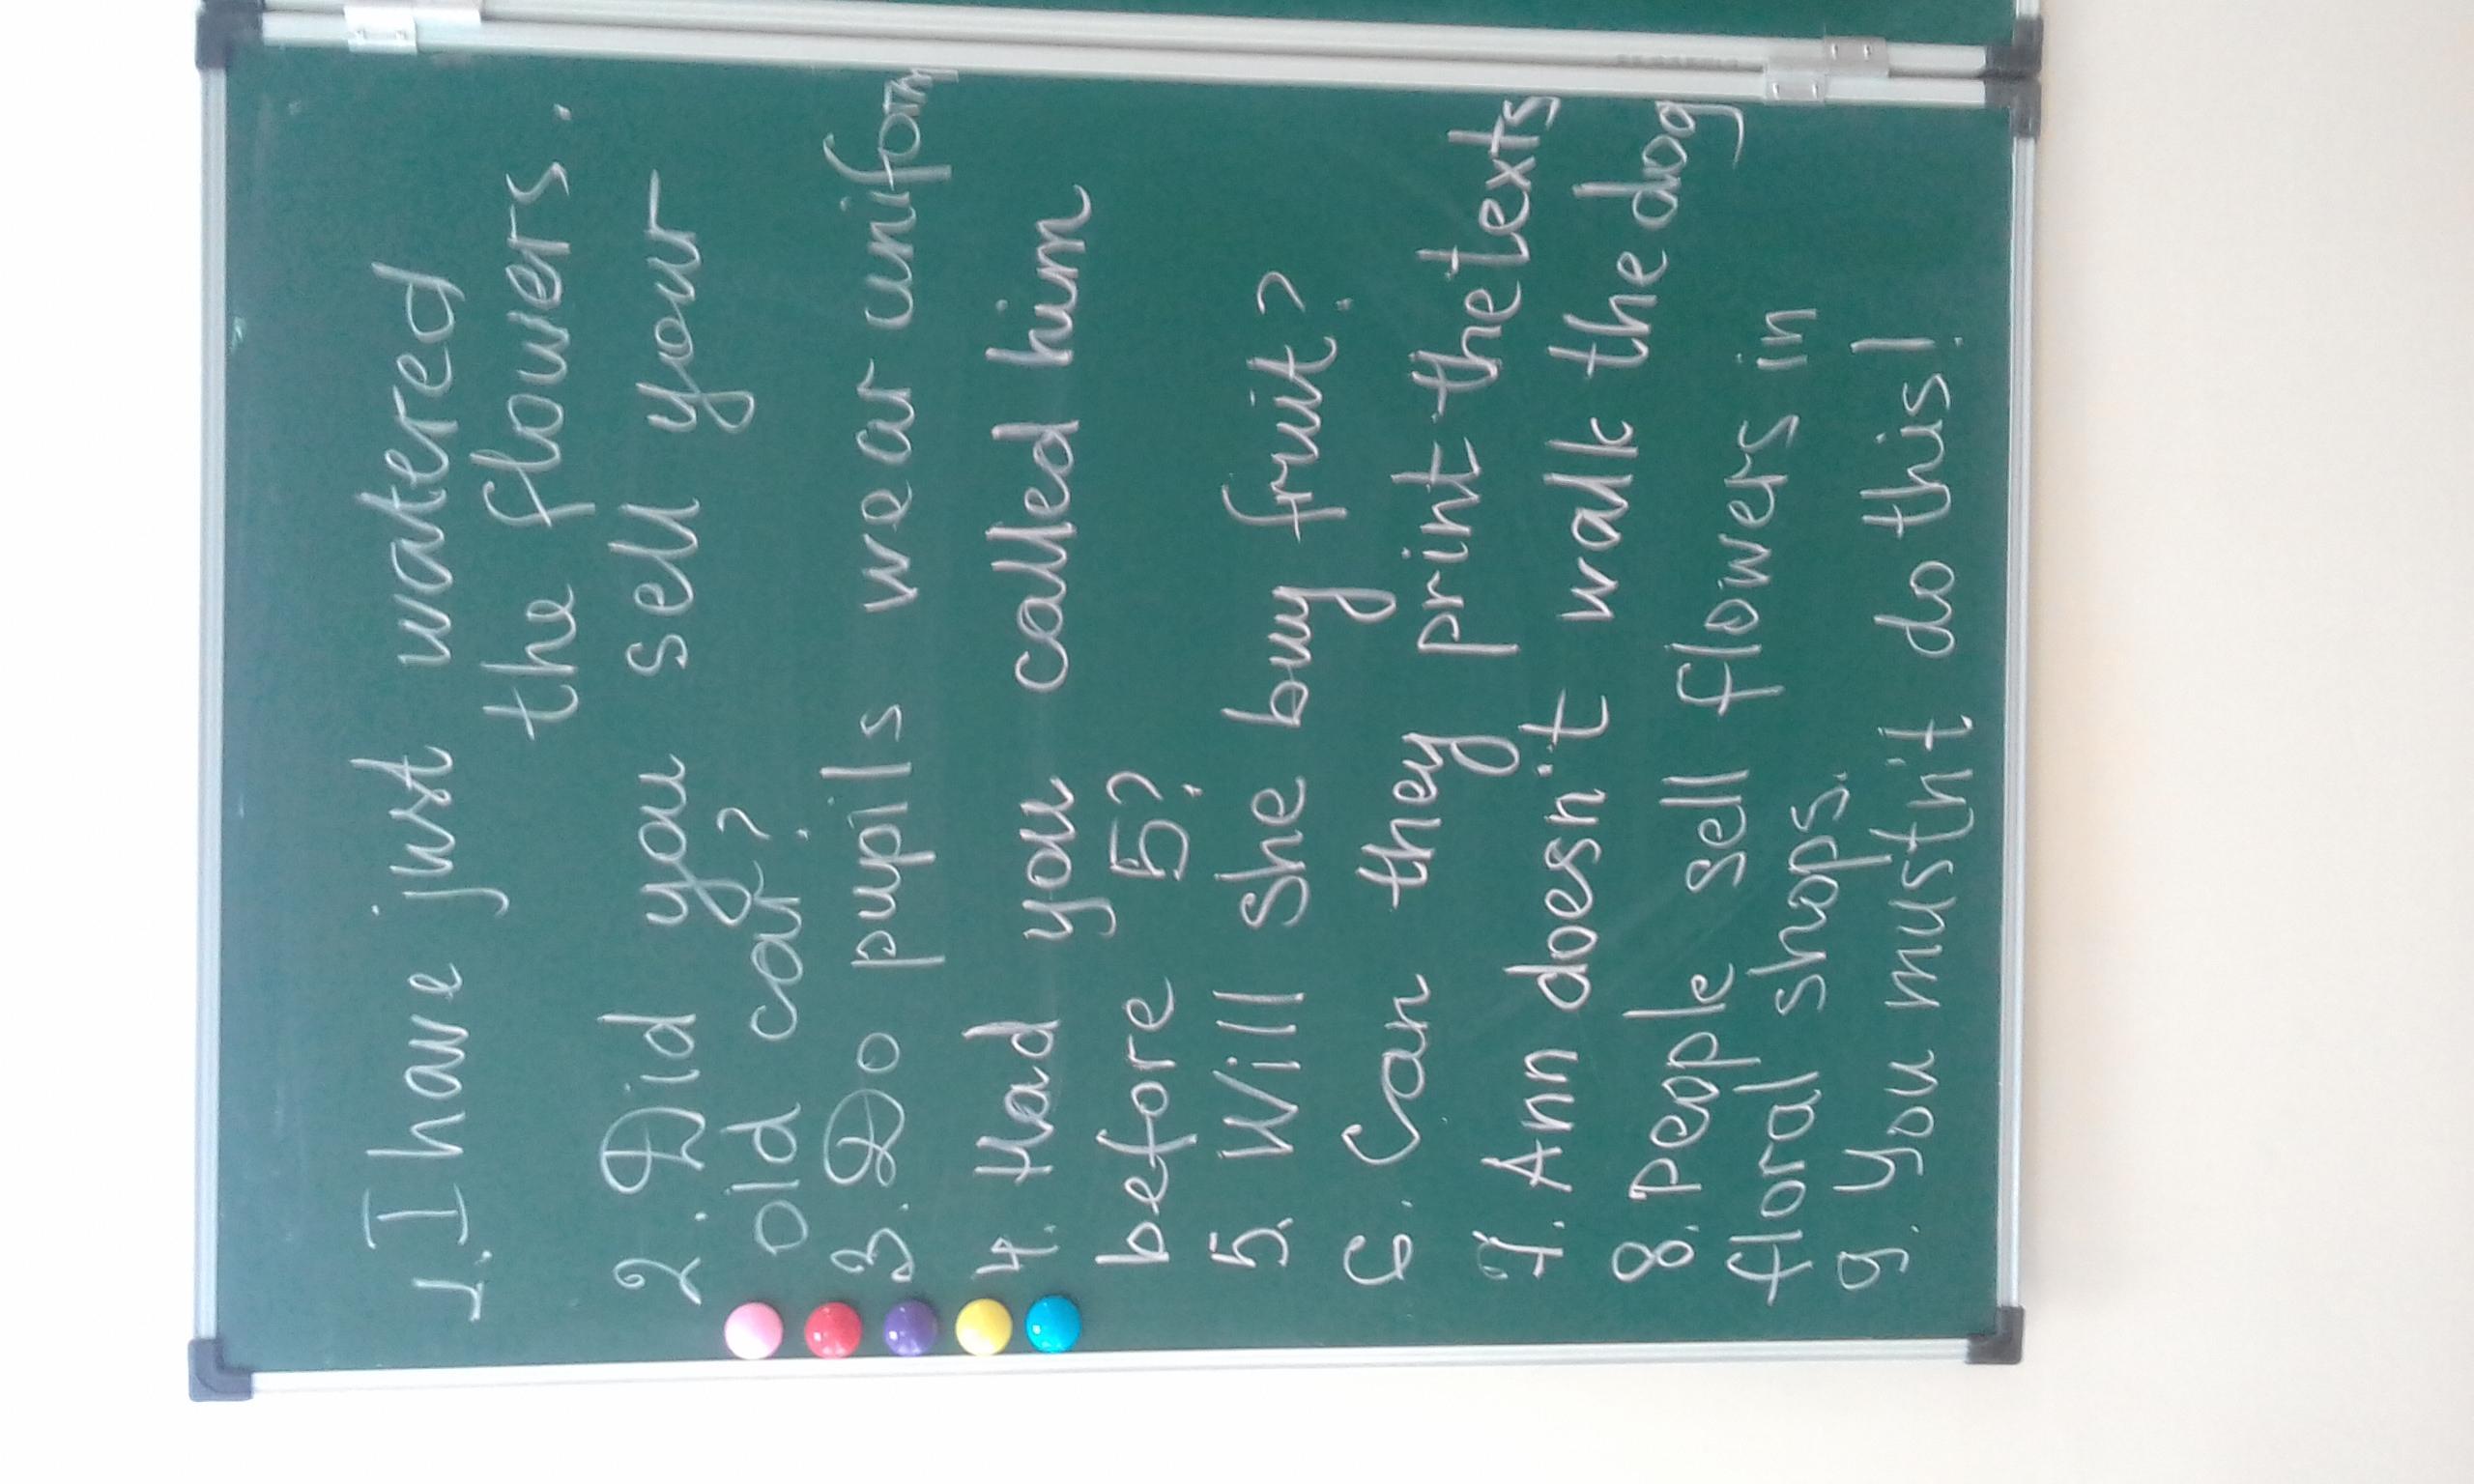 1. I have just watered
the flowers.
2. Did you sell your
old car?
3. Do pupils wear uniform
4. Had you called him
before 5?
5. Will she buy fruit?
6. Can they print the texts
7. Ann doesn't walk the dog
8. People sell flowers in
floral shops.
9. You mustn't do this!